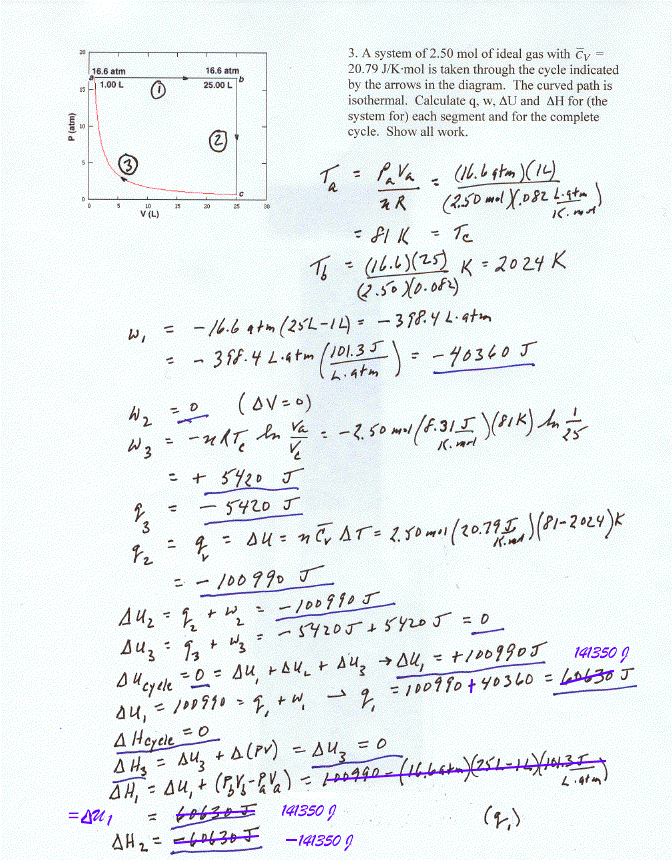 3. A system of 2.50 mol of ideal gas with C̅v =
20.79 J/K·mol is taken through the cycle indicated
by the arrows in the diagram. The curved path is
isothermal. Calculate q, w, ΔU and ΔH for (the
system for) each segment and for the complete
cycle. Show all work.
20
15
10
5
0
P (atm)
a
16.6 atm
1.00 L
①
16.6 atm
25.00 L
b
②
③
c
0 5 10 15 20 25 30
V (L)
Ta = PaVa / nR = (16.6 atm)(1L) / (2.50 mol)(.082 L·atm / K·mol)
= 81 K = Tc
Tb = (16.6)(25) / (2.50)(0.082) K = 2024 K
w₁ = -16.6 atm (25L-1L) = -398.4 L·atm
= -398.4 L·atm (101.3 J / L·atm) = -40360 J
w₂ = 0 (ΔV=0)
w₃ = -nRTc ln Va/Vc = -2.50 mol (8.31 J / K·mol)(81K) ln 1/25
= + 5420 J
q₃ = -5420 J
q₂ = qv = ΔU = n C̅v ΔT = 2.50 mol (20.79 J / K·mol)(81-2024)K
= -100990 J
ΔU₂ = q₂ + w₂ = -100990 J
ΔU₃ = q₃ + w₃ = -5420J + 5420 J = 0
ΔUcycle = 0 = ΔU₁ + ΔU₂ + ΔU₃ → ΔU₁ = +100990 J
141350 J
ΔU₁ = 100990 = q₁ + w₁ → q₁ = 100990 + 40360 = 60630 J
ΔHcycle = 0
ΔH₃ = ΔU₃ + Δ(PV) = ΔU₃ = 0
ΔH₁ = ΔU₁ + (PbVb - PaVa) = 100990 - (16.6atm)(25L-1L)(101.3 J / L·atm)
= ΔU₁ = 60630 J 141350 J (q₁)
ΔH₂ = -60630 J -141350 J